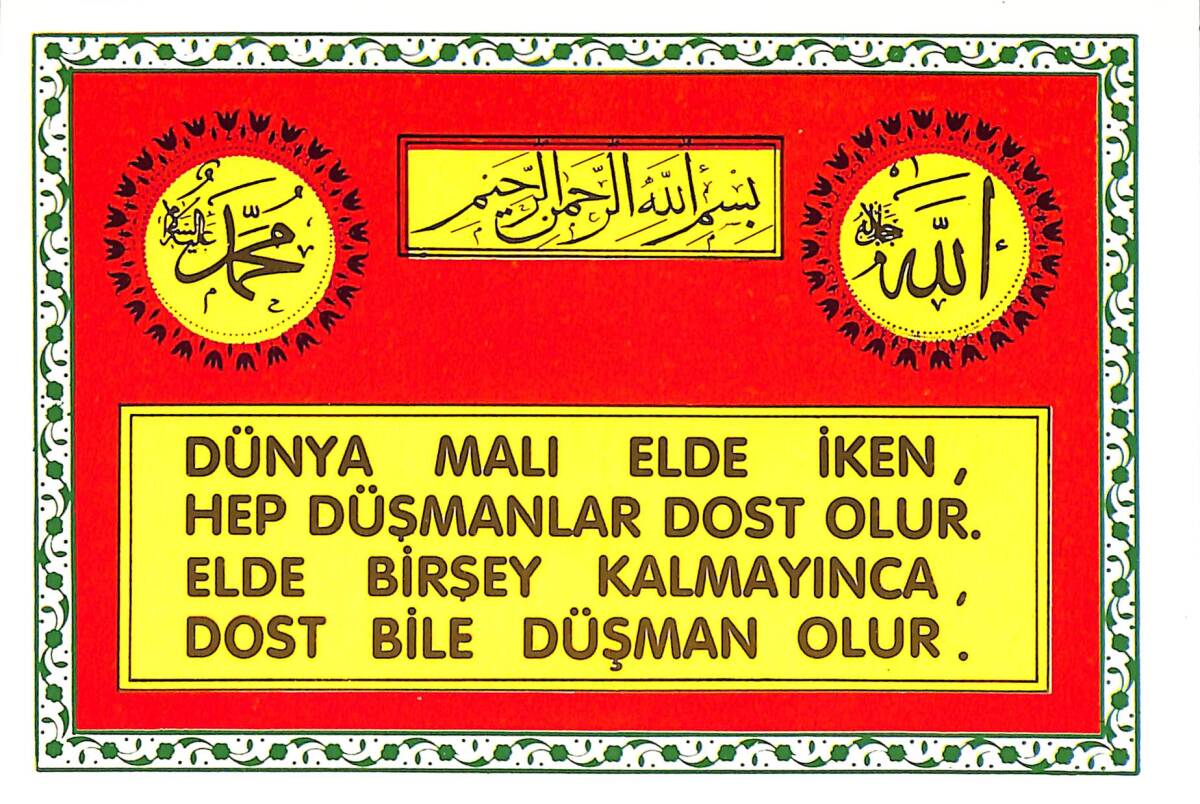 محمد عليه السلام
بسم الله الرحمن الرحيم
الله جل جلاله
DÜNYA MALI ELDE İKEN,
HEP DÜŞMANLAR DOST OLUR.
ELDE BİRŞEY KALMAYINCA,
DOST BİLE DÜŞMAN OLUR.